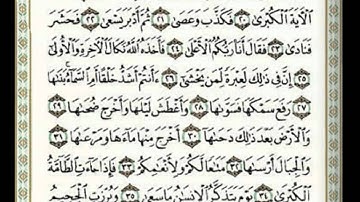 ٱلْأٓيَةَ ٱلْكُبْرَىٰ ٢٠ فَكَذَّبَ وَعَصَىٰ ٢١ ثُمَّ أَدْبَرَ يَسْعَىٰ ٢٢ فَحَشَرَ
فَنَادَىٰ ٢٣ فَقَالَ أَنَا۠ رَبُّكُمُ ٱلْأَعْلَىٰ ٢٤ فَأَخَذَهُ ٱللَّهُ نَكَالَ ٱلْأٓخِرَةِ وَٱلْأُولَىٰٓ
٢٥ إِنَّ فِى ذَٰلِكَ لَعِبْرَةً لِّمَن يَخْشَىٰٓ ٢٦ ءَأَنتُمْ أَشَدُّ خَلْقًا أَمِ ٱلسَّمَآءُ ۚ بَنَىٰهَا
٢٧ رَفَعَ سَمْكَهَا فَسَوَّىٰهَا ٢٨ وَأَغْطَشَ لَيْلَهَا وَأَخْرَجَ ضُحَىٰهَا ٢٩
وَٱلْأَرْضَ بَعْدَ ذَٰلِكَ دَحَىٰهَآ ٣٠ أَخْرَجَ مِنْهَا مَآءَهَا وَمَرْعَىٰهَا ٣١
وَٱلْجِبَالَ أَرْسَىٰهَا ٣٢ مَتَٰعًا لَّكُمْ وَلِأَنْعَٰمِكُمْ ٣٣ فَإِذَا جَآءَتِ ٱلطَّآمَّةُ
ٱلْكُبْرَىٰ ٣٤ يَوْمَ يَتَذَكَّرُ ٱلْإِنسَٰنُ مَا سَعَىٰ ٣٥ وَبُرِّزَتِ ٱلْجَحِيمُ